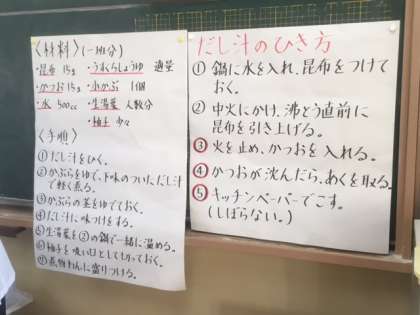 〈材料〉(一班分)
・昆布 15g ・うすくちしょうゆ 適量
・かつお 15g ・小かぶ 1個
・水 500cc ・生湯葉 人数分
・柚子 少々
〈手順〉
①だし汁をひく。
②かぶらをゆで、下味のついただし汁
で軽く煮る。
③かぶらの茎をゆでておく。
④だし汁に味つけをする。
⑤生湯葉を②の鍋で一緒に温める。
⑥柚子を吸い口として切っておく。
⑦煮物わんに盛りつける。
だし汁のひき方
①鍋に水を入れ、昆布をつけて
おく。
②中火にかけ、沸とう直前に
昆布を引き上げる。
③火を止め、かつおを入れる。
④かつおが沈んだら、あくを取る。
⑤キッチンペーパーでこす。
(しぼらない。)